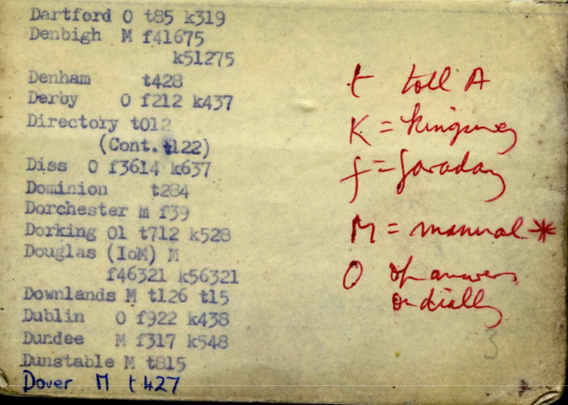 Dartford O t85 k319
Denbigh M f41675
k51275
Denham t428
Derby O f212 k437
Directory t012
(Cont. t122)
Diss O f3614 k637
Dominion t284
Dorchester m f39
Dorking Ol t712 k528
Douglas (IoM) M
f46321 k56321
Downlands M t126 t15
Dublin O f922 k438
Dundee M f317 k548
Dunstable M t815
Dover M t427
t toll A
K = Kingsway
f = faraday
M = manual *
O op answers
on dially
3